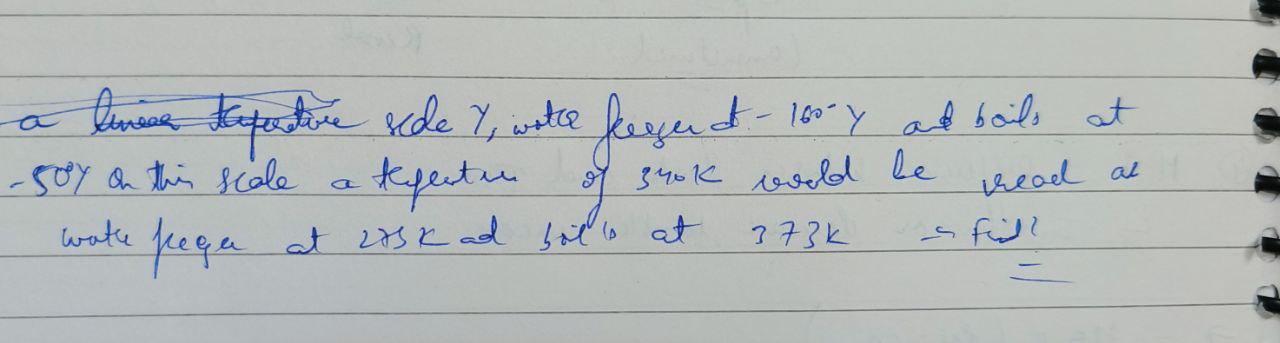 a linear temperature scale Y, water freezes at -160°Y and boils at
-50°Y On this scale a temperature of 340K would be read as
water freezes at 273K and boils at 373K → Find?